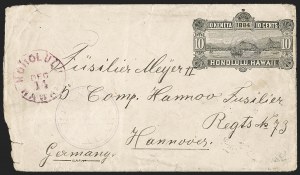 10 KENETA 1884 10 CENTS
10 10
HONOLULU HAWAII
HONOLULU
DEC
14
Füsilier Meyer II
5 Comp. Hannov Fusilier
Regts № 73
Hannover.
Germany.